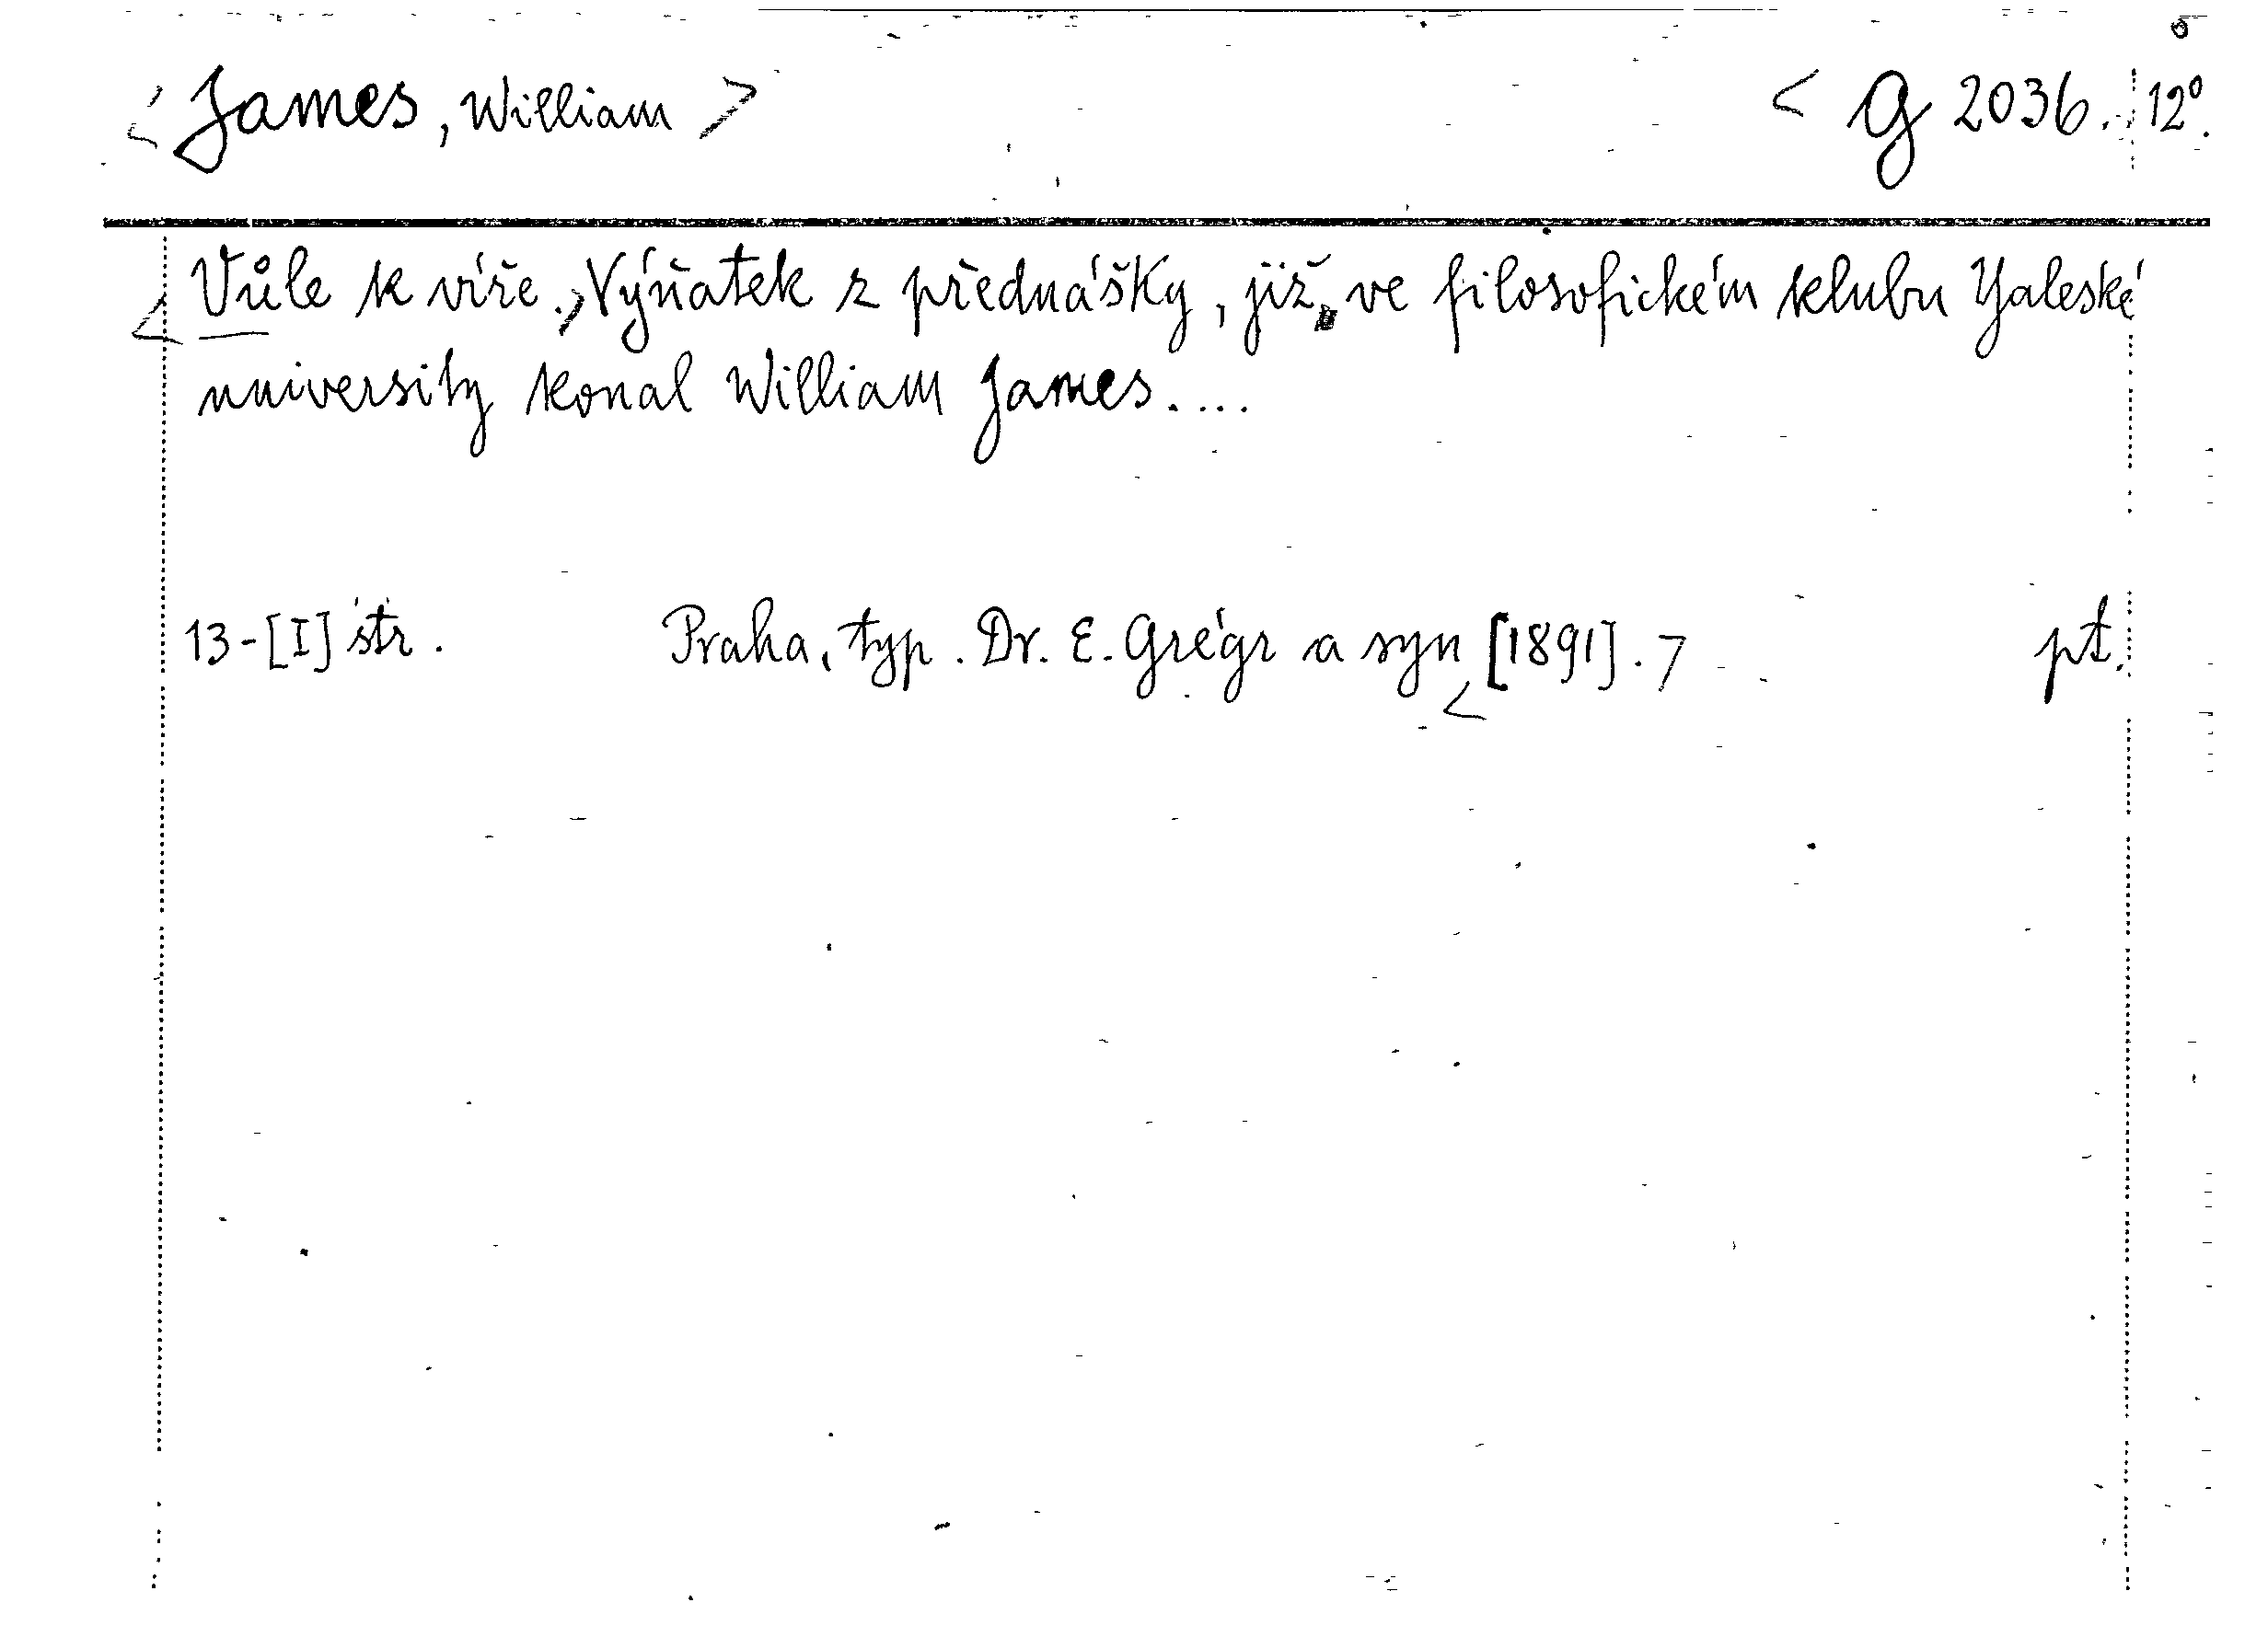 < James, William > < G 2036. 12°.
< Vůle k víře., Výňatek z přednášky, již ve filosofickém klubu Yaleské
university konal William James....
13-[I] str. Praha, typ. Dr. E. Grégr a syn < [1891]. > př.